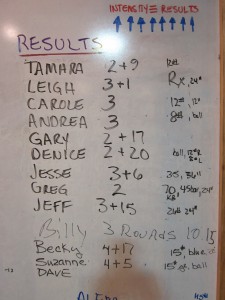 INTENSITY = RESULTS
RESULTS
TAMARA 2+9 12#
LEIGH 3+1 Rx, 24"
CAROLE 3 12#, 12"
ANDREA 3 8#, ball
GARY 2+17
DENICE 2+20 ball, 12#R
JESSE 3+6 35, 36"
GREG 2 70, 45lb, 24"
KB
JEFF 3+15 26# 24"
Billy 3 ROUNDS 10.15
Becky 4+17 15#, blue
Suzanne 4+5 15# ball
DAVE